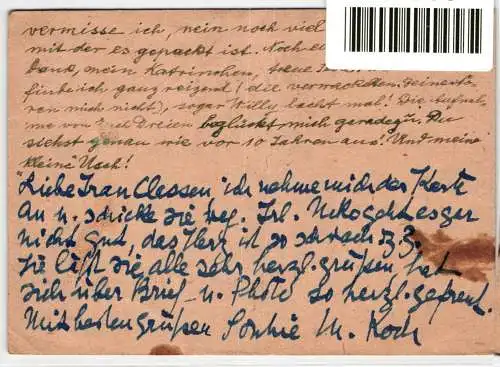 vermisse ich, mein noch viel
mit der es gepackt ist. Noch
dank, mein Katrinchen,
finde ich ganz reizend! (die verrackten Deine
ren mich nicht), sogar Willy lacht mal! Die Aufnah-
me von Euch Dreien beglückt mich geradezu. Du
siehst genau wie vor 10 Jahren aus! Und meine
kleine Usch!
Liebe Frau Clessen ich nehme mich der Karte
an u. schicke sie weg. Frl. geht es gar
nicht gut, das Herz ist so schwach z. Z.
Sie läßt sie alle sehr herzl. grüßen, hat
sich über Brief u. Photo so herzl. gefreut.
Mit besten Grüßen Sophie M. Koch